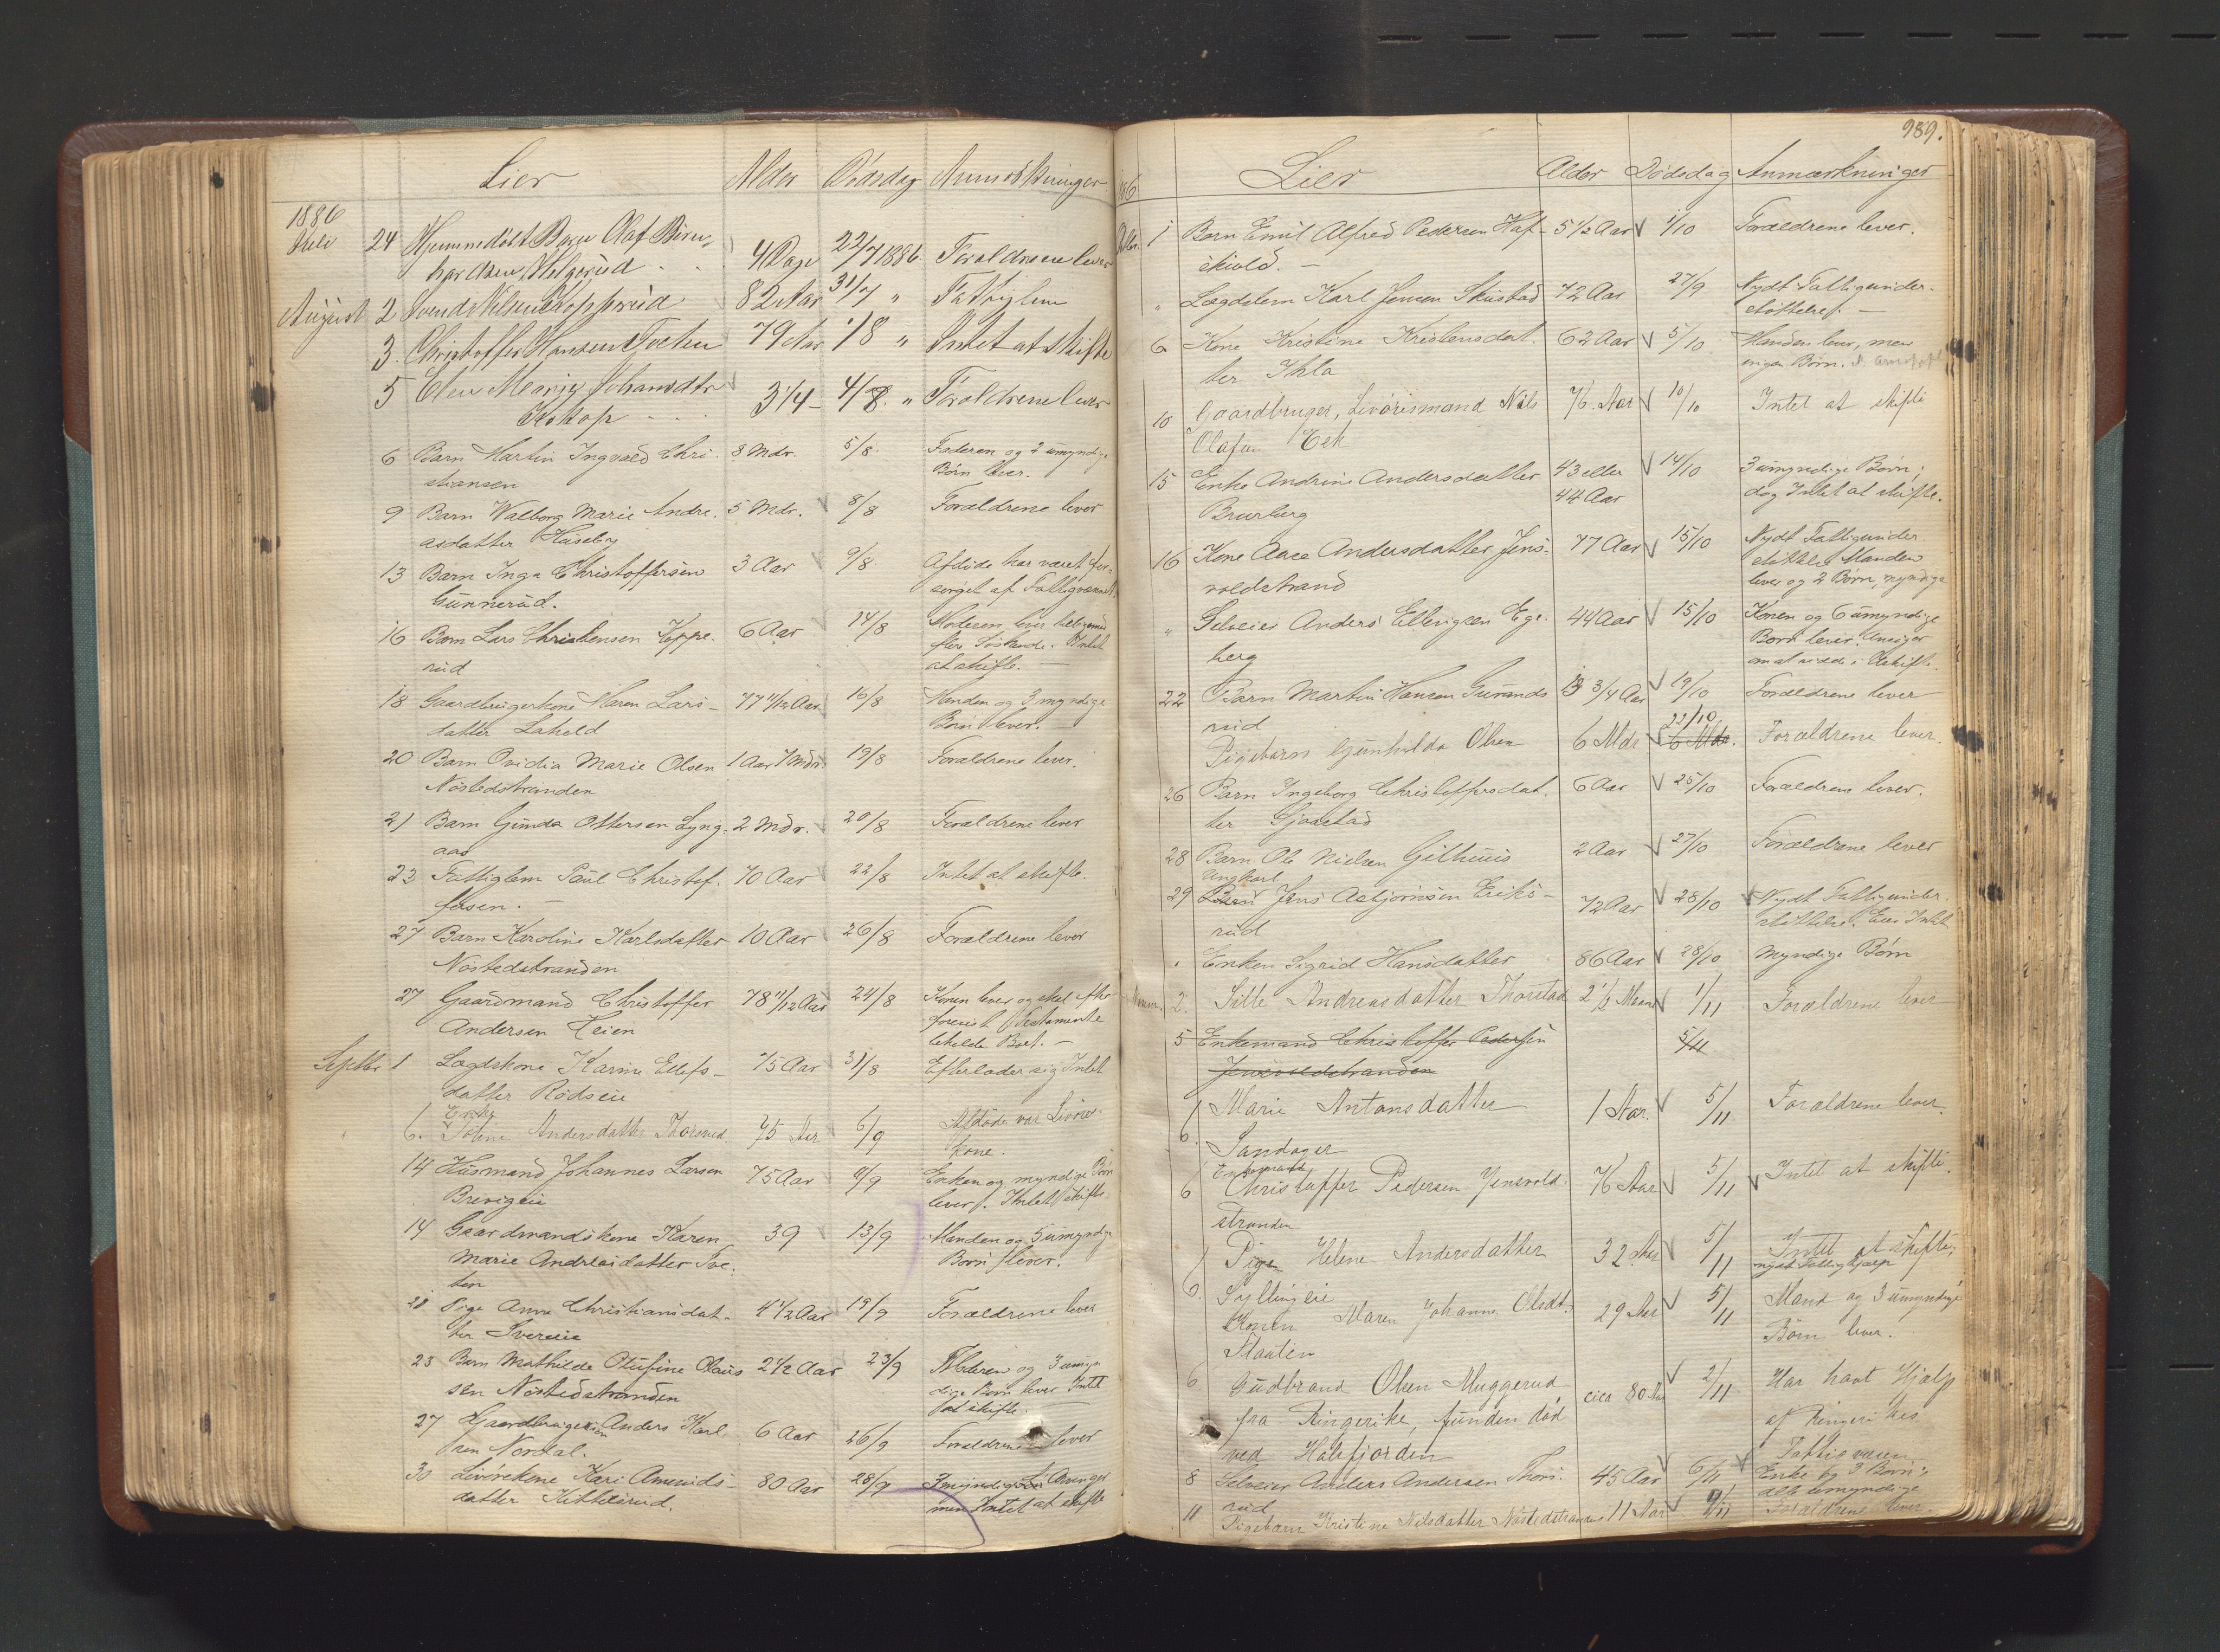 Lier Alder Dødsdag Anmærkninger
1886
Juli 24 Hjemmedøbt Barn Olaf Birn-
4 Dage 22/7 1886 Forældrene lever
August 2 Svend Nilsen Kopperud 82 Aar 31/7 " Fattiglem
3. Christoffer Hansen Tveten 79 Aar 1/8 " Intet at skifte
5 Elen Marie Johansdtr 3 1/4 - 4/8. " Forældrene lever
6 Barn Martin Ingvald Chri- 8 Mdr. 5/8 Faderen og 2 umyndige
stiansen Børn lever.
9 Barn Walborg Marie Andre- 5 Mdr. 8/8 Forældrene lever
asdatter Huseby
13 Barn Inga Christoffersen 3 Aar 9/8 Afdøde har været for-
Gunnerud. sørget af Fattigvæsenet.
16 Barn Lars Christensen Koppe- 6 Aar 14/8 Moderen lever
rud flere Søskende. Intet
at skifte. —
18 Gaardbrugerkone Maren Lars- 77 11/12 Aar 16/8 Manden og 3 myndige
datter Lahell Børn lever. —
20 Barn Ovidia Marie Olsen 1 Aar 7 Mdr. 19/8 Forældrene lever.
Nøstedstranden
21 Barn Gunda Ottersen Lyng- 2 Mdr. 20/8 Forældrene lever
aas
23 Fattiglem Paul Christof- 70 Aar 22/8 Intet at skifte.
fersen. —
27 Barn Karoline Karlsdatter 10 Aar 26/8 Forældrene lever
Nøstedstranden
27 Gaardmand Christoffer 78 11/12 Aar 24/8 Konen lever og skal efter
Andersen Heien forevist Testamente
beholde Boet. —
Septbr 1 Lægdskone Karine Ellefs- 75 Aar 31/8 Efterlader sig Intet
datter Rødseie
Enke
6. Andersdatter 75 Aar 6/9 Afdøde var Livøres-
kone.
14 Husmand Johannes Larsen 75 Aar 9/9 Enken og myndige Børn
lever. Intet at skifte.
14 Gaardmandskone Karen 39 13/9 Manden og 5 umyndige
Marie Andreasdatter Tve- Børn lever.
ten
21 Pige Anne Christiansdat- 4 1/2 Aar 19/9 Forældrene lever
ter
23 Barn Mathilde Olufine Olaus- 2 1/2 Aar 23/9 Moderen og 3 umyn-
sen Nøstedstranden dige Børn lever Intet
at skifte. —
27 Anders Karl- 6 Aar 26/9 Forældrene lever
sen Nordal.
30 Livørekone Kari Amunds- 80 Aar 28/9
datter Kittilsrud. men Intet at skifte
989.
86 Lier Alder Dødsdag Anmærkninger
Oktbr. 1 Barn Emil Alfred Pedersen Haf- 5 1/2 Aar 1/10 Forældrene lever.
skiold. —
" Lægdslem Karl Jensen Skustad 72 Aar 27/9 Nydt Fattigunder-
støttelse. —
6 Kone Kristine Kristensdat- 62 Aar 5/10 Manden lever, men
ter Ihla ingen Børn.
10 Gaardbruger, Livørismand Nils 76 Aar 10/10 Intet at skifte
Olafsen Eek
15 Enke Andrine Andersdatter 43 eller 14/10 3 umyndige Børn;
Brurberg 44 Aar dog Intet at skifte.
16 Kone Aase Andersdatter Jens- 77 Aar 15/10 Nydt Fattigunder-
voldstrand støttelse. Manden
lever og 2 Børn, myndige
" Selveier Anders Ellingsen Ege- 44 Aar 15/10 Konen og 6 umyndige
berg Børn lever. Ansøger
om at sidde i Uskifte.
22 Barn Martin Hansen Gunnds- 3 3/4 Aar 19/10 Forældrene lever
rud
Pigebarn Gunhilda Olsen 6 Mdr 22/10 6 Mdr. Forældrene lever.
26 Barn Ingeborg Christoffersdat- 6 Aar 25/10 Forældrene lever.
ter
28 Barn Ole Nielsen Gilhuus 2 Aar 27/10 Forældrene lever
Ungkarl
29 Barn Jens Asbjørnsen Eriks- 72 Aar 28/10 Nydt Fattigunder-
rud støttelse. Eier Intet
" Enken Sigrid Hansdatter 86 Aar 28/10 Myndige Børn
Novem. 2. Andreasdatter Thorstad 1/11 Forældrene lever
5 Enkemand Christoffer Pedersen 5/11
Jensvoldstranden
6 Marie Antonsdatter 1 Aar. 5/11 Forældrene lever.
Sandager
Enkemand
6 Christoffer Pedersen Jensvold- 76 Aar 5/11 Intet at skifte.
stranden
6. Pige Helene Andersdatter 32 Aar 5/11 Intet at skifte,
Syllingeie nydt Fattighjælp
6. Konen Maren Johanne Olsdt. 29 Aar 5/11 Mand og 3 umyndige
Staaten Børn lever.
6 Gudbrand Olsen Muggerud cica 80 Aar 2/11 Har havt Hjælp
fra Ringerike, funden død af Ringerikes
ved Holsfjorden Fattigvæsen
8 Selveier Anders Andersen Thors- 45 Aar 6/11 Enke og 3 Børn,
rud alle umyndige
11 Pigebarn Kristine Nilsdatter Nøstedstranden 11 Aar 9/11 Forældrene lever